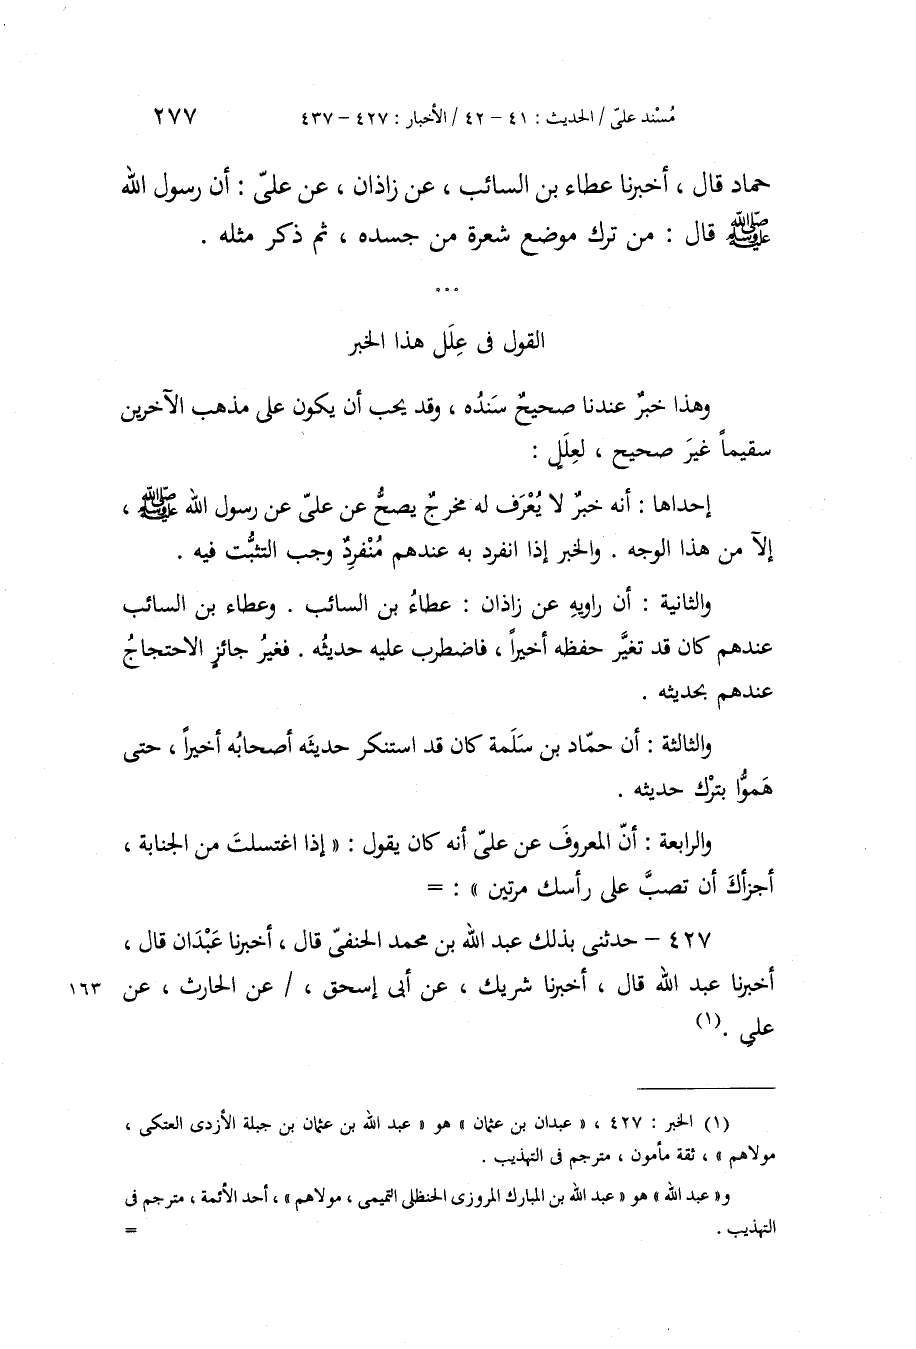 مُسْند علىّ / الحديث : ٤١ – ٤٢ / الأخبار : ٤٢٧ – ٤٣٧ ٢٧٧
حماد قال ، أخبرنا عطاء بن السائب ، عن زاذان ، عن علىّ : أن رسول الله
ﷺ قال : من ترك موضع شعرة من جسده ، ثم ذكر مثله .
...
القول فى عِلَل هذا الخبر
وهذا خبرٌ عندنا صحيحٌ سَندُه ، وقد يجب أن يكون على مذهب الآخرين
سقيماً غيرَ صحيح ، لعِلَلٍ :
إحداها : أنه خبرٌ لا يُعْرَف له مخرجٌ يصحُّ عن علىّ عن رسول الله ﷺ ،
إلاّ من هذا الوجه . والخبر إذا انفرد به عندهم مُنْفردٌ وجب التثبُّت فيه .
والثانية : أن راويهِ عن زاذان : عطاءُ بن السائب . وعطاء بن السائب
عندهم كان قد تغيَّر حفظه أخيراً ، فاضطرب عليه حديثُه . فغيرُ جائزٍ الاحتجاجُ
عندهم بحديثه .
والثالثة : أن حمّاد بن سَلَمة كان قد استنكر حديثَه أصحابُه أخيراً ، حتى
هَموُّا بترْك حديثه .
والرابعة : أنّ المعروفَ عن علىّ أنه كان يقول : « إذا اغتسلتَ من الجنابة ،
أجزأكَ أن تصبَّ على رأسك مرتين » : =
٤٢٧ – حدثنى بذلك عبد الله بن محمد الحنفىّ قال ، أخبرنا عَبْدَان قال ،
أخبرنا عبد الله قال ، أخبرنا شريك ، عن أبى إسحق ، / عن الحارث ، عن ١٦٣
علي .(١)
(١) الخبر : ٤٢٧ ، « عبدان بن عثمان » هو « عبد الله بن عثمان بن جبلة الأزدى العتكى ،
مولاهم » ، ثقة مأمون ، مترجم فى التهذيب .
و« عبد الله » هو « عبد الله بن المبارك المروزى الحنظلى التميمى ، مولاهم » ، أحد الأئمة ، مترجم فى
التهذيب . =